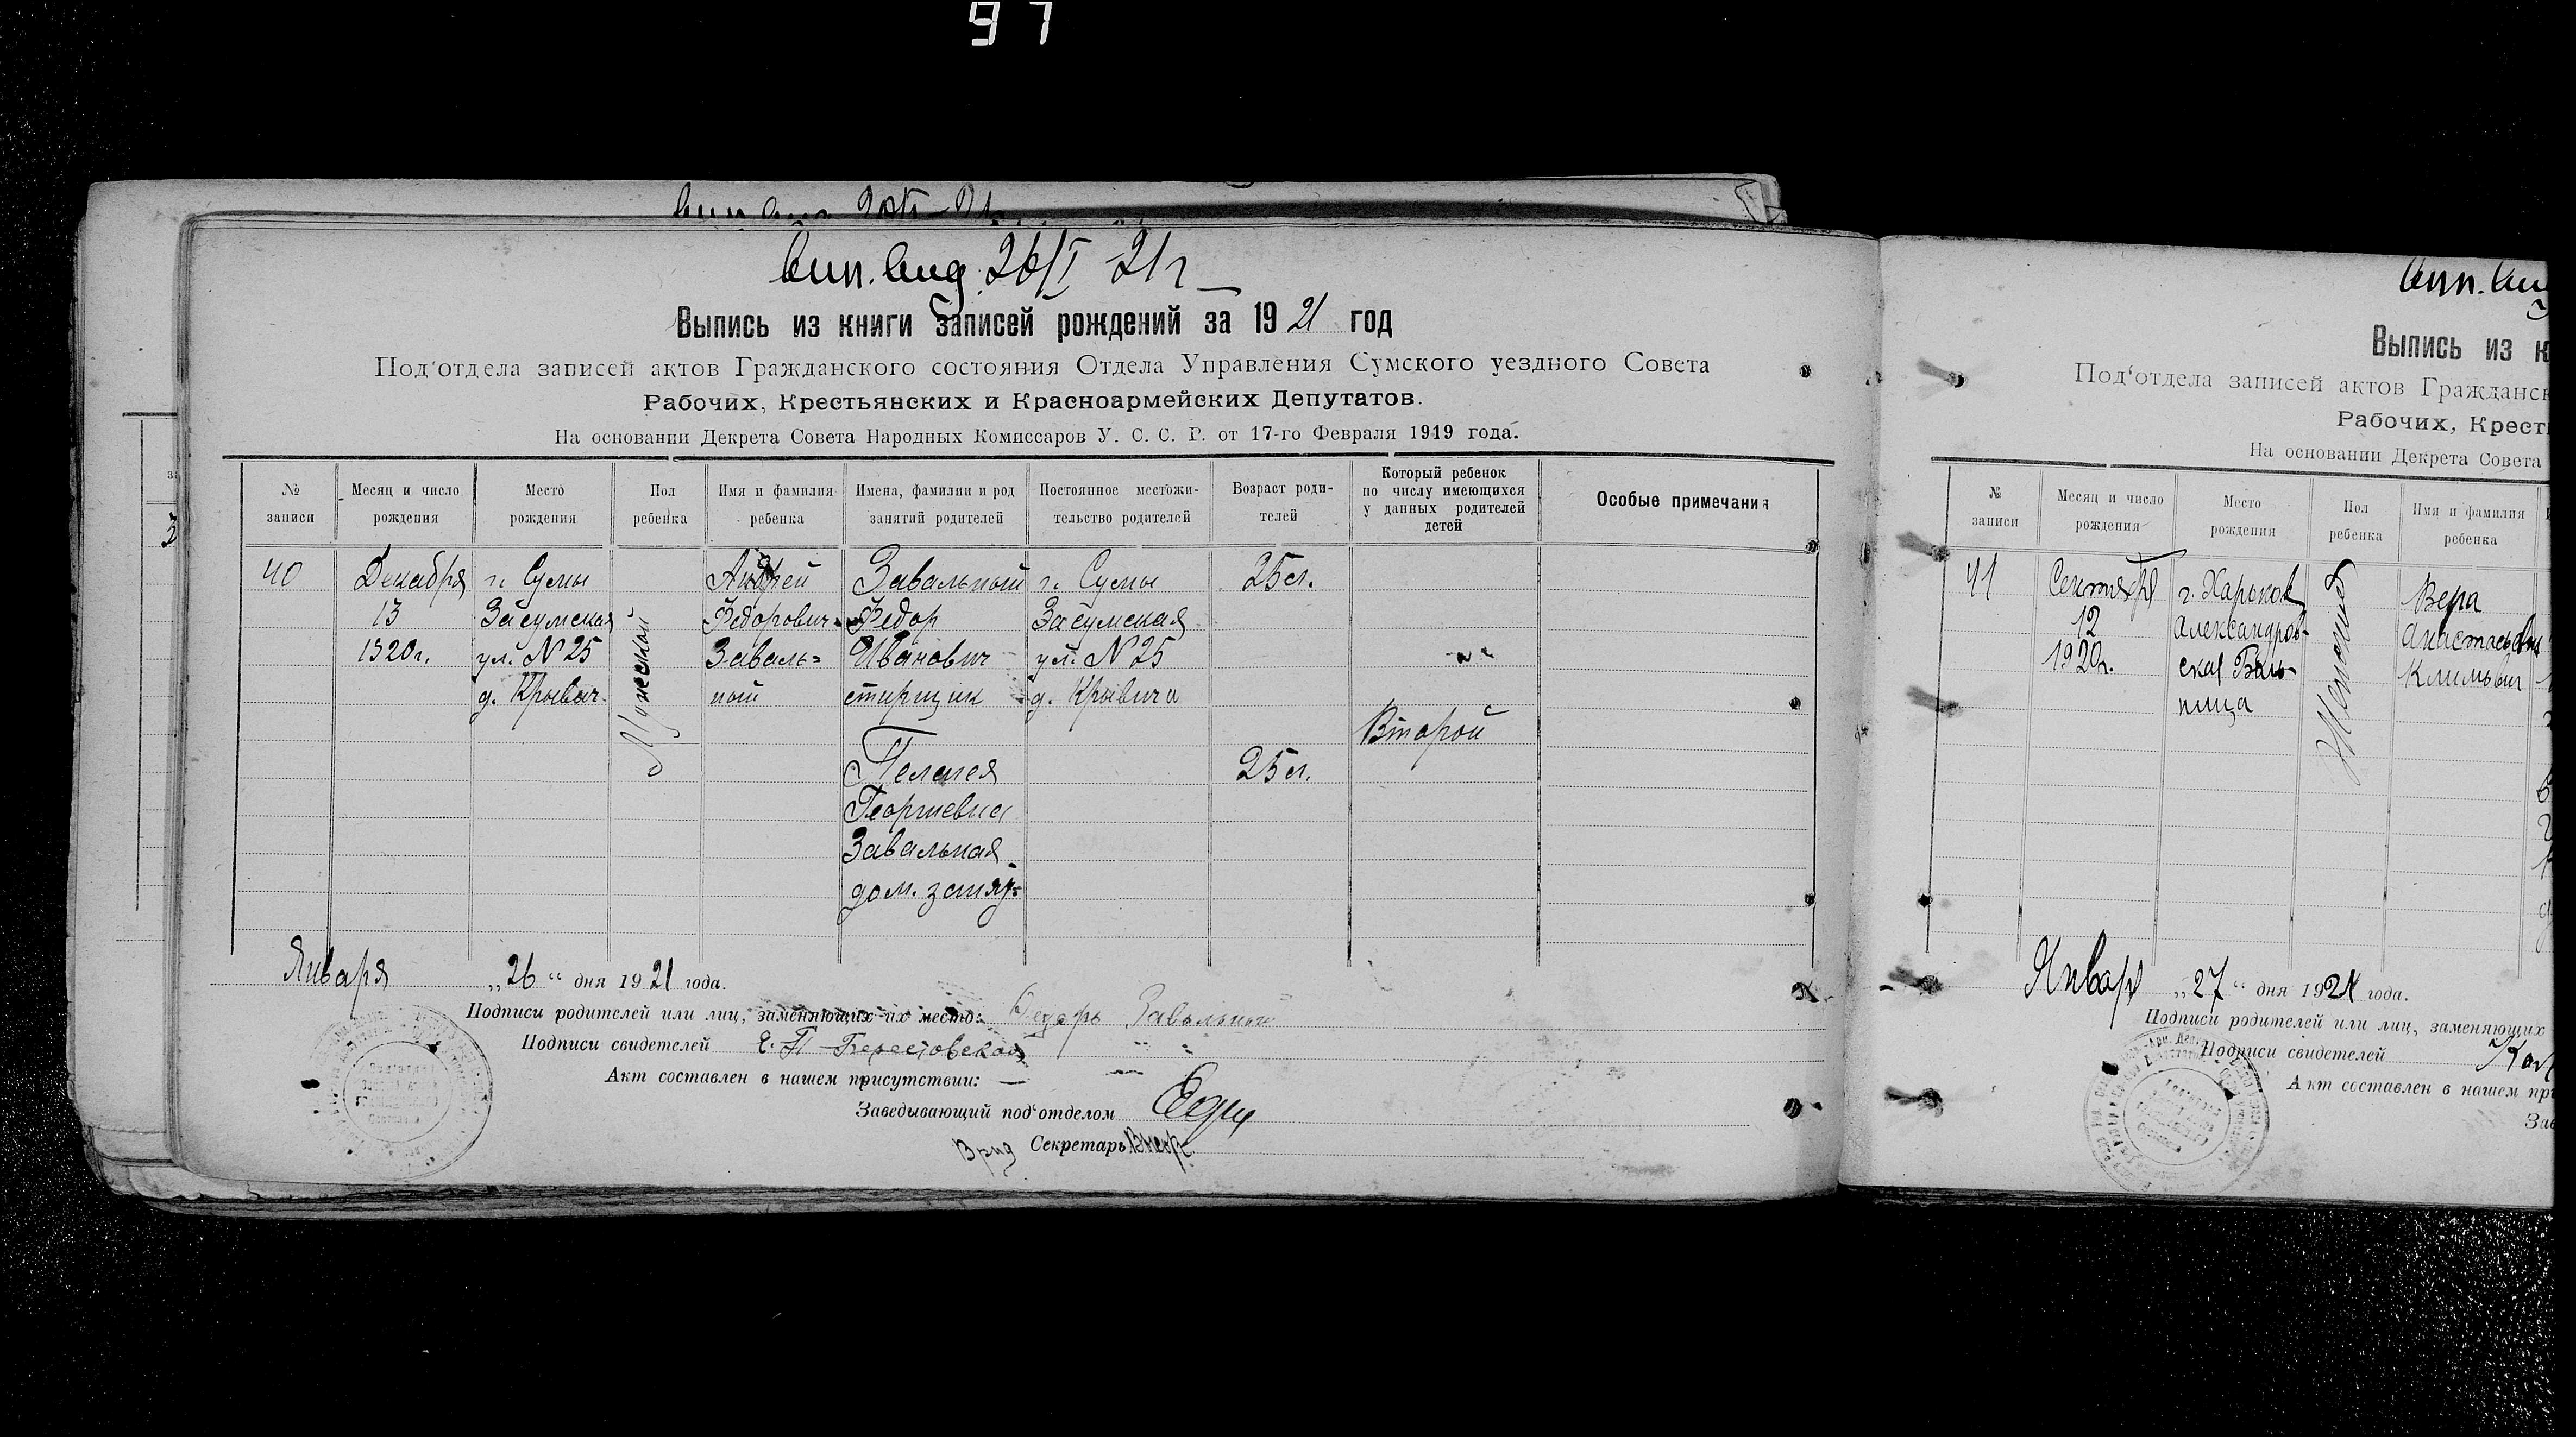 97
вып. выд. 26/I 21 г
Выпись из книги записей рождений за 1921 год
Под‘отдела записей актов Гражданского состояния Отдела Управления Сумского уездного Совета
Рабочих, Крестьянских и Красноармейских Депутатов.
На основании Декрета Совета Народных Комиссаров У. С. С. Р. от 17-го Февраля 1919 года.
№ записи
Месяц и число рождения
Место рождения
Пол ребенка
Имя и фамилия ребенка
Имена, фамилии и род занятий родителей
Постоянное местожительство родителей
Возраст родителей
Который ребенок по числу имеющихся у данных родителей детей
Особые примечания
40
Декабря
13
1920 г.
г. Сумы
Засумская
ул. № 25
д. Крывич-
Мужеской
Андрей
Федорович
Заваль=
ный
Завальный
Федор
Иванович
г. Сумы
Засумская
ул. № 25
д. Крывича
25 л.
Второй
Пелагея
Георгиевна
Завальная
дом. заняг-
25 л.
Января „26“ дня 1921 года.
Подписи родителей или лиц, заменяющих их место: Федорь Завальной
Подписи свидетелей
Акт составлен в нашем присутствии:
Заведывающий под‘отделом
Врид Секретарь
Выпись из к
Под‘отдела записей актов Гражданск
Рабочих, Крест
На основании Декрета Совета
№ записи
Месяц и число рождения
Место рождения
Пол ребенка
Имя и фамилия ребенка
41
Сентября
12
1920 г.
г. Харьков
Александров-
ская Боль-
ница
Женский
Вера
Января „27“ дня 1921 года.
Подписи родителей или лиц, заменяющих
Подписи свидетелей
Акт составлен в нашем пр
Зав